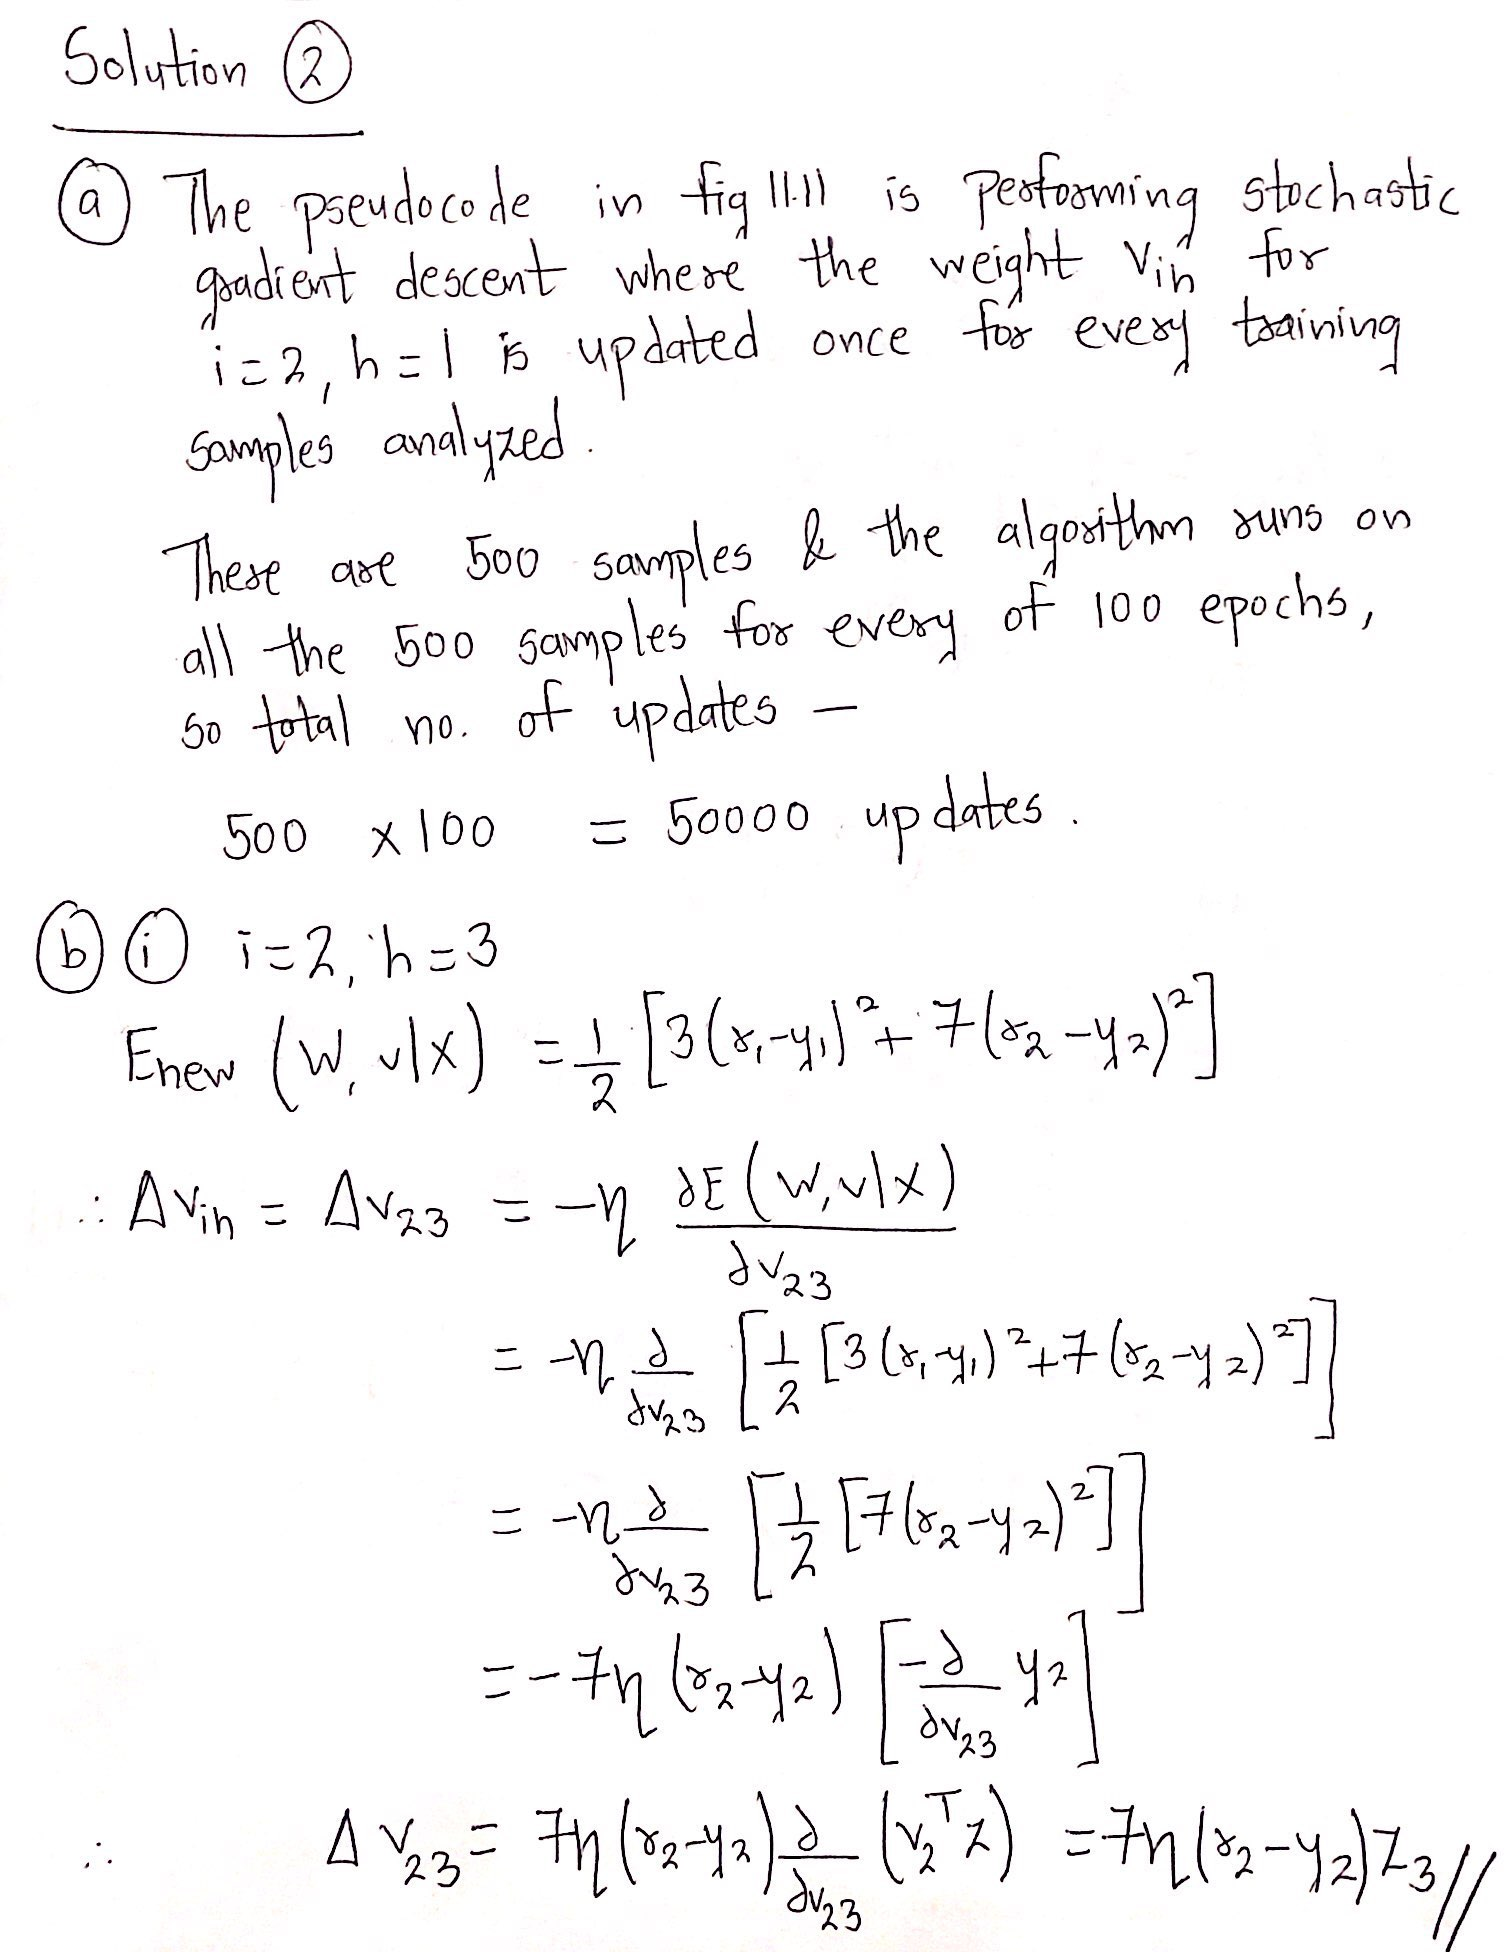 Solution ②
ⓐ The pseudocode in fig 11.11 is performing stochastic
gradient descent where the weight Vih for
i=2, h=1 is updated once for every training
samples analyzed.
There are 500 samples & the algorithm runs on
all the 500 samples for every of 100 epochs,
so total no. of updates –
500 x 100 = 50000 updates.
ⓑ ⓘ i=2, h=3
Enew (W, v|X) = 1/2 [3(r₁-y₁)² + 7(r₂-y₂)²]
∴ Δvih = Δv₂₃ = -η ∂E(W,v|X)/∂v₂₃
= -η ∂/∂v₂₃ [1/2 [3(r₁-y₁)²+7(r₂-y₂)²]]
= -η ∂/∂v₂₃ [1/2 [7(r₂-y₂)²]]
= -7η (r₂-y₂) [-∂/∂v₂₃ y₂]
∴ Δv₂₃ = 7η(r₂-y₂) ∂/∂v₂₃ (v₂ᵀz) = 7η(r₂-y₂)z₃//